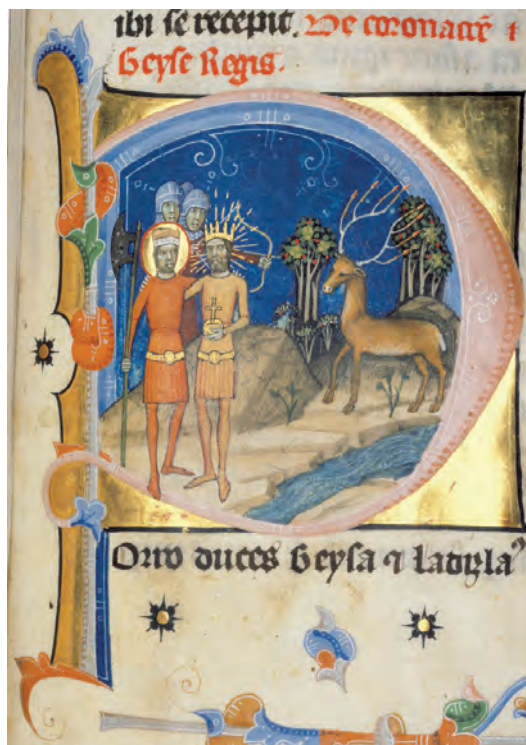 ibi se recepit. De coronacōē ⁊
Geyse Regis.
Porro duces Geysa ⁊ ladizla⁹